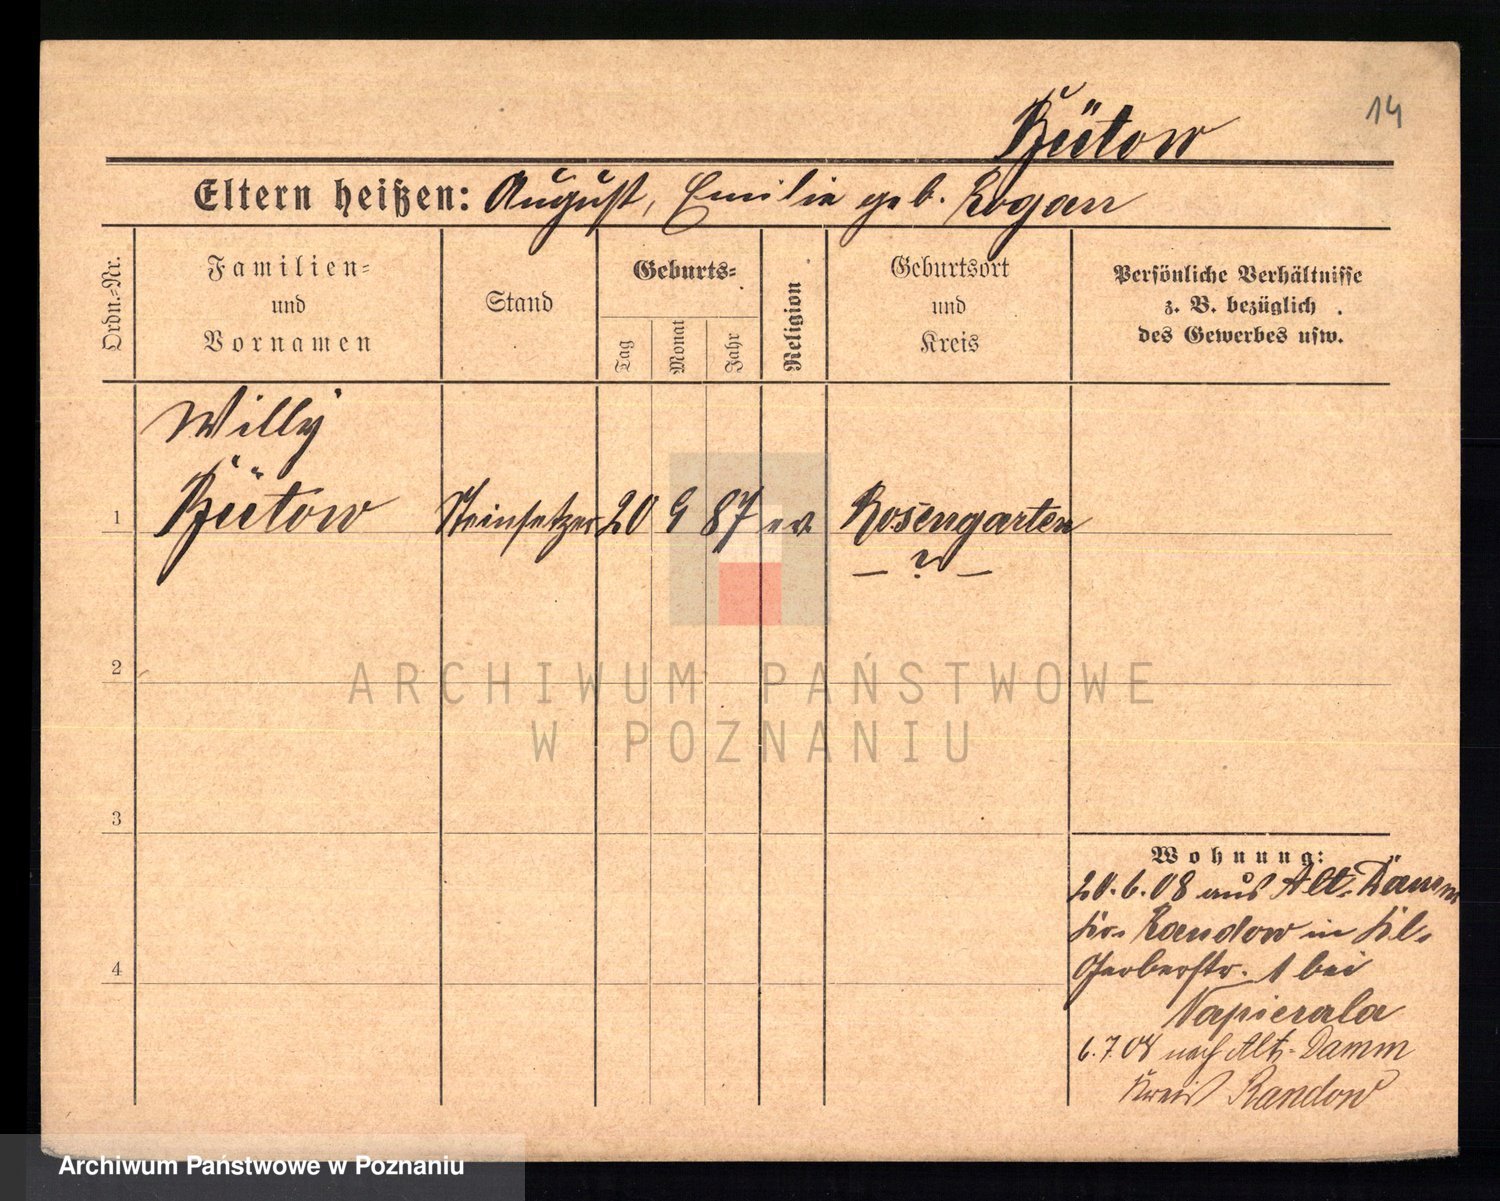 14
Bütow
Eltern heißen: August, Emilie geb. Rogan
Ordn.-Nr.
Familien-
und
Vornamen
Stand
Geburts-
Tag
Monat
Jahr
Religion
Geburtsort
und
Kreis
Persönliche Verhältnisse
z. B. bezüglich
des Gewerbes usw.
Willy
1 Bütow Steinsetzer 20 9 87 ev Rosengarten
— ? —
2
ARCHIWUM PAŃSTWOWE
W POZNANIU
3
Wohnung:
20.6.08 aus Alt-Damm
Kr. Randow in
4
Gerberstr. 1 bei
Napierala
6.7.08 nach Alt-Damm
Kreis Randow
Archiwum Państwowe w Poznaniu